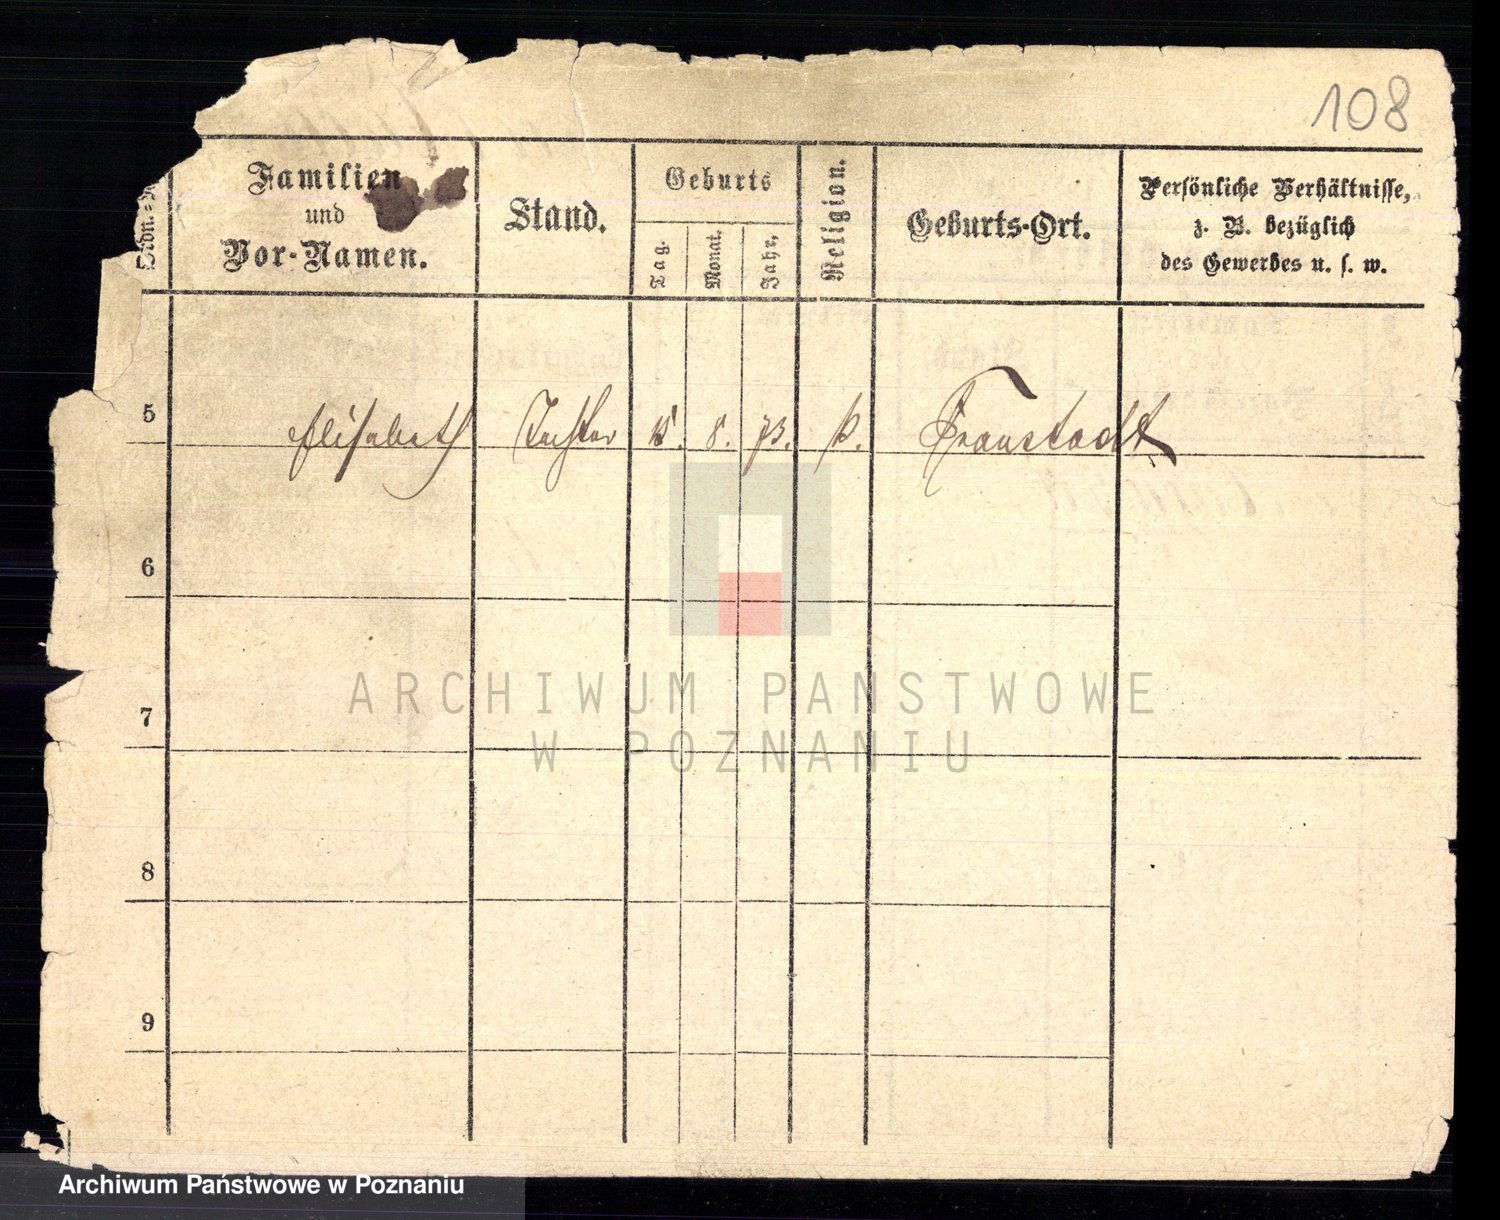 108
Familien
und
Vor-Namen.
Stand.
Geburts
Tag.
Monat.
Jahr,
Religion.
Geburts-Ort.
Persönliche Verhältnisse,
z. B. bezüglich
des Gewerbes u. s. w.
5 Elisabeth Tochter 8. 73. Fraustadt
6
7
8
9
ARCHIWUM PAŃSTWOWE
W POZNANIU
Archiwum Państwowe w Poznaniu